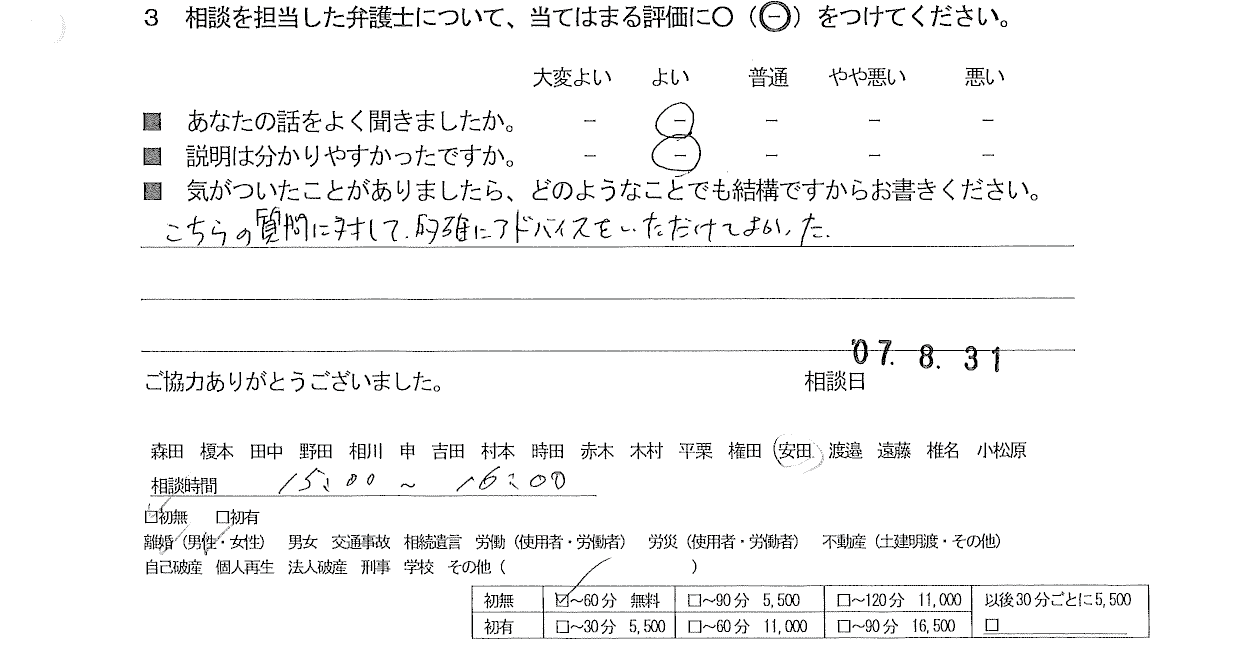 3 相談を担当した弁護士について、当てはまる評価に○（㊀）をつけてください。
大変よい よい 普通 やや悪い 悪い
■ あなたの話をよく聞きましたか。 － － － － －
■ 説明は分かりやすかったですか。 － － － － －
■ 気がついたことがありましたら、どのようなことでも結構ですからお書きください。
こちらの質問に対して、的確にアドバイスをいただけてよかった.
'07. 8. 31
ご協力ありがとうございました。 相談日
森田 榎本 田中 野田 相川 申 吉田 村本 時田 赤木 木村 平栗 権田 安田 渡邉 遠藤 椎名 小松原
相談時間 15:00 ～ 16:00
☑初無 □初有
離婚（男性・女性） 男女 交通事故 相続遺言 労働（使用者・労働者） 労災（使用者・労働者） 不動産（土建明渡・その他）
自己破産 個人再生 法人破産 刑事 学校 その他（ ）
初無 ☑～60分 無料 □～90分 5,500 □～120分 11,000 以後30分ごとに5,500
初有 □～30分 5,500 □～60分 11,000 □～90分 16,500 □